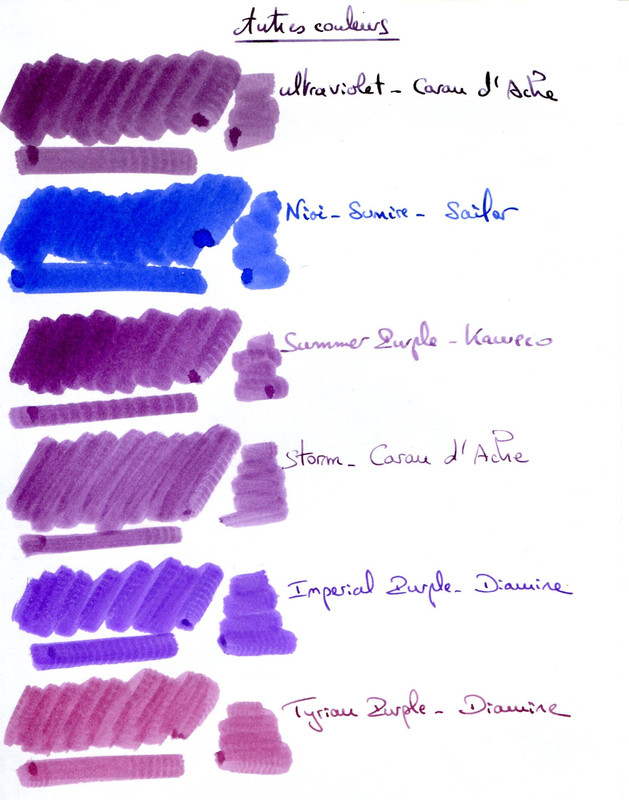 Autres couleurs
ultraviolet - Caran d'Ache
Nioi - Sumire - Sailor
Summer Purple - Kaweco
Storm - Caran d'Ache
Imperial Purple - Diamine
Tyrian Purple - Diamine